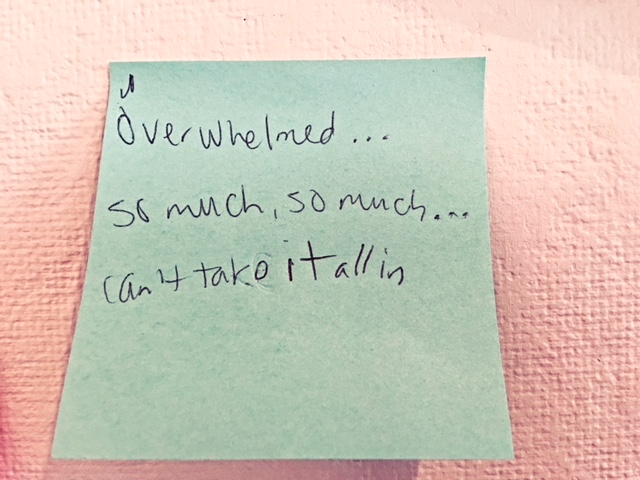 Overwhelmed...
so much, so much...
can't take it all in